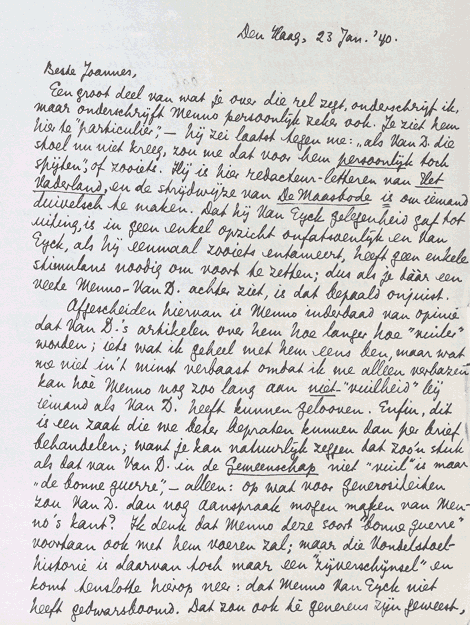 Den Haag, 23 Jan. '40.
Beste Joannes,
Een groot deel van wat je over die rel zegt, onderschrijf ik,
maar onderschrijft Menno persoonlijk zeker ook. Je ziet hem
hier te "particulier", — hij zei laatst tegen me: „als Van D. die
stoel nu niet kreeg, zou me dat voor hem persoonlijk toch
spijten", of zooiets. Hij is hier redacteur-letteren van Het
Vaderland, en de strijdwijze van De Maasbode is om iemand
duivelsch te maken. Dat hij Van Eyck gelegenheid gaf tot
uiting, is in geen enkel opzicht onfatsoenlijk en Van
Eyck, als hij eenmaal zooiets entameert, heeft geen enkele
stimulans noodig om voort te zetten; dus als je dáár een
veete Menno-Van D. achter ziet, is dat bepaald onjuist.
Afgescheiden hiervan is Menno inderdaad van opinie
dat Van D.'s artikelen over hem hoe langer hoe "vuiler"
worden; iets wat ik geheel met hem eens ben, maar wat
me niet in 't minst verbaast omdat ik me alleen verbazen
kan hoe Menno nog zoo lang aan niet-"vuilheid" bij
iemand als Van D. heeft kunnen gelooven. Enfin, dit
is een zaak die we beter bepraten kunnen dan per brief
behandelen; want je kan natuurlijk zeggen dat zoo'n stuk
als dat van Van D. in de Gemeenschap niet "vuil" is maar
"de bonne guerre", — alleen: op wat voor generositeiten
zou Van D. dan nog aanspraak mogen maken van Men-
no's kant? Ik denk dat Menno deze soort "bonne guerre"
voortaan ook met hem voeren zal; maar die Vondelstoel-
historie is daarvan toch maar een "zijverschijnsel" en
komt tenslotte hierop neer: dat Menno Van Eyck niet
heeft gedwarsboomd. Dat zou ook té genereus zijn geweest,